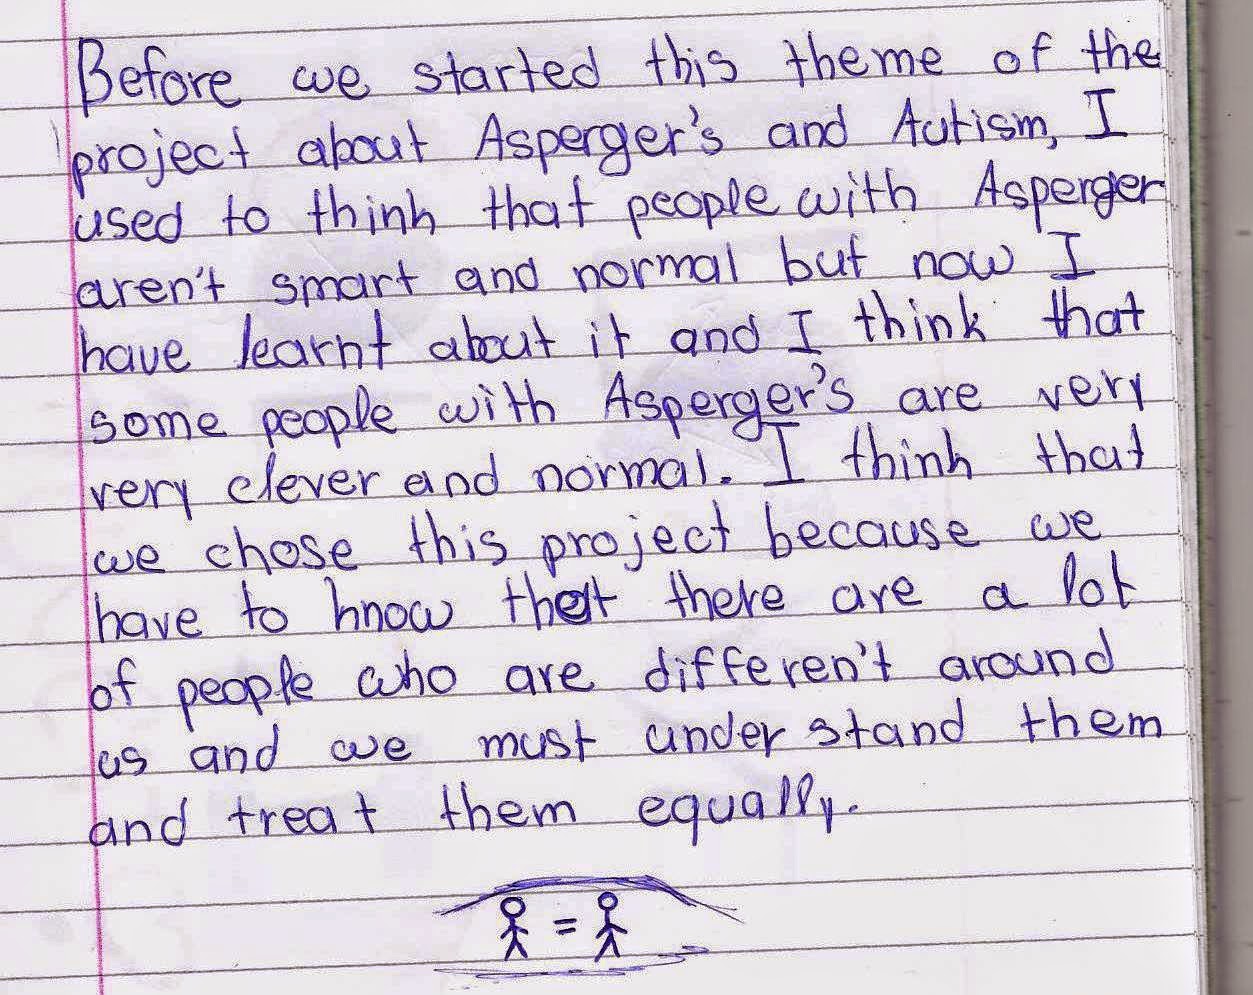 Before we started this theme of the
project about Asperger's and Autism, I
used to think that people with Asperger
aren't smart and normal but now I
have learnt about it and I think that
some people with Asperger's are very
very clever and normal. I think that
we chose this project because we
have to know that there are a lot
of people who are differen't around
us and we must understand them
and treat them equally.
=